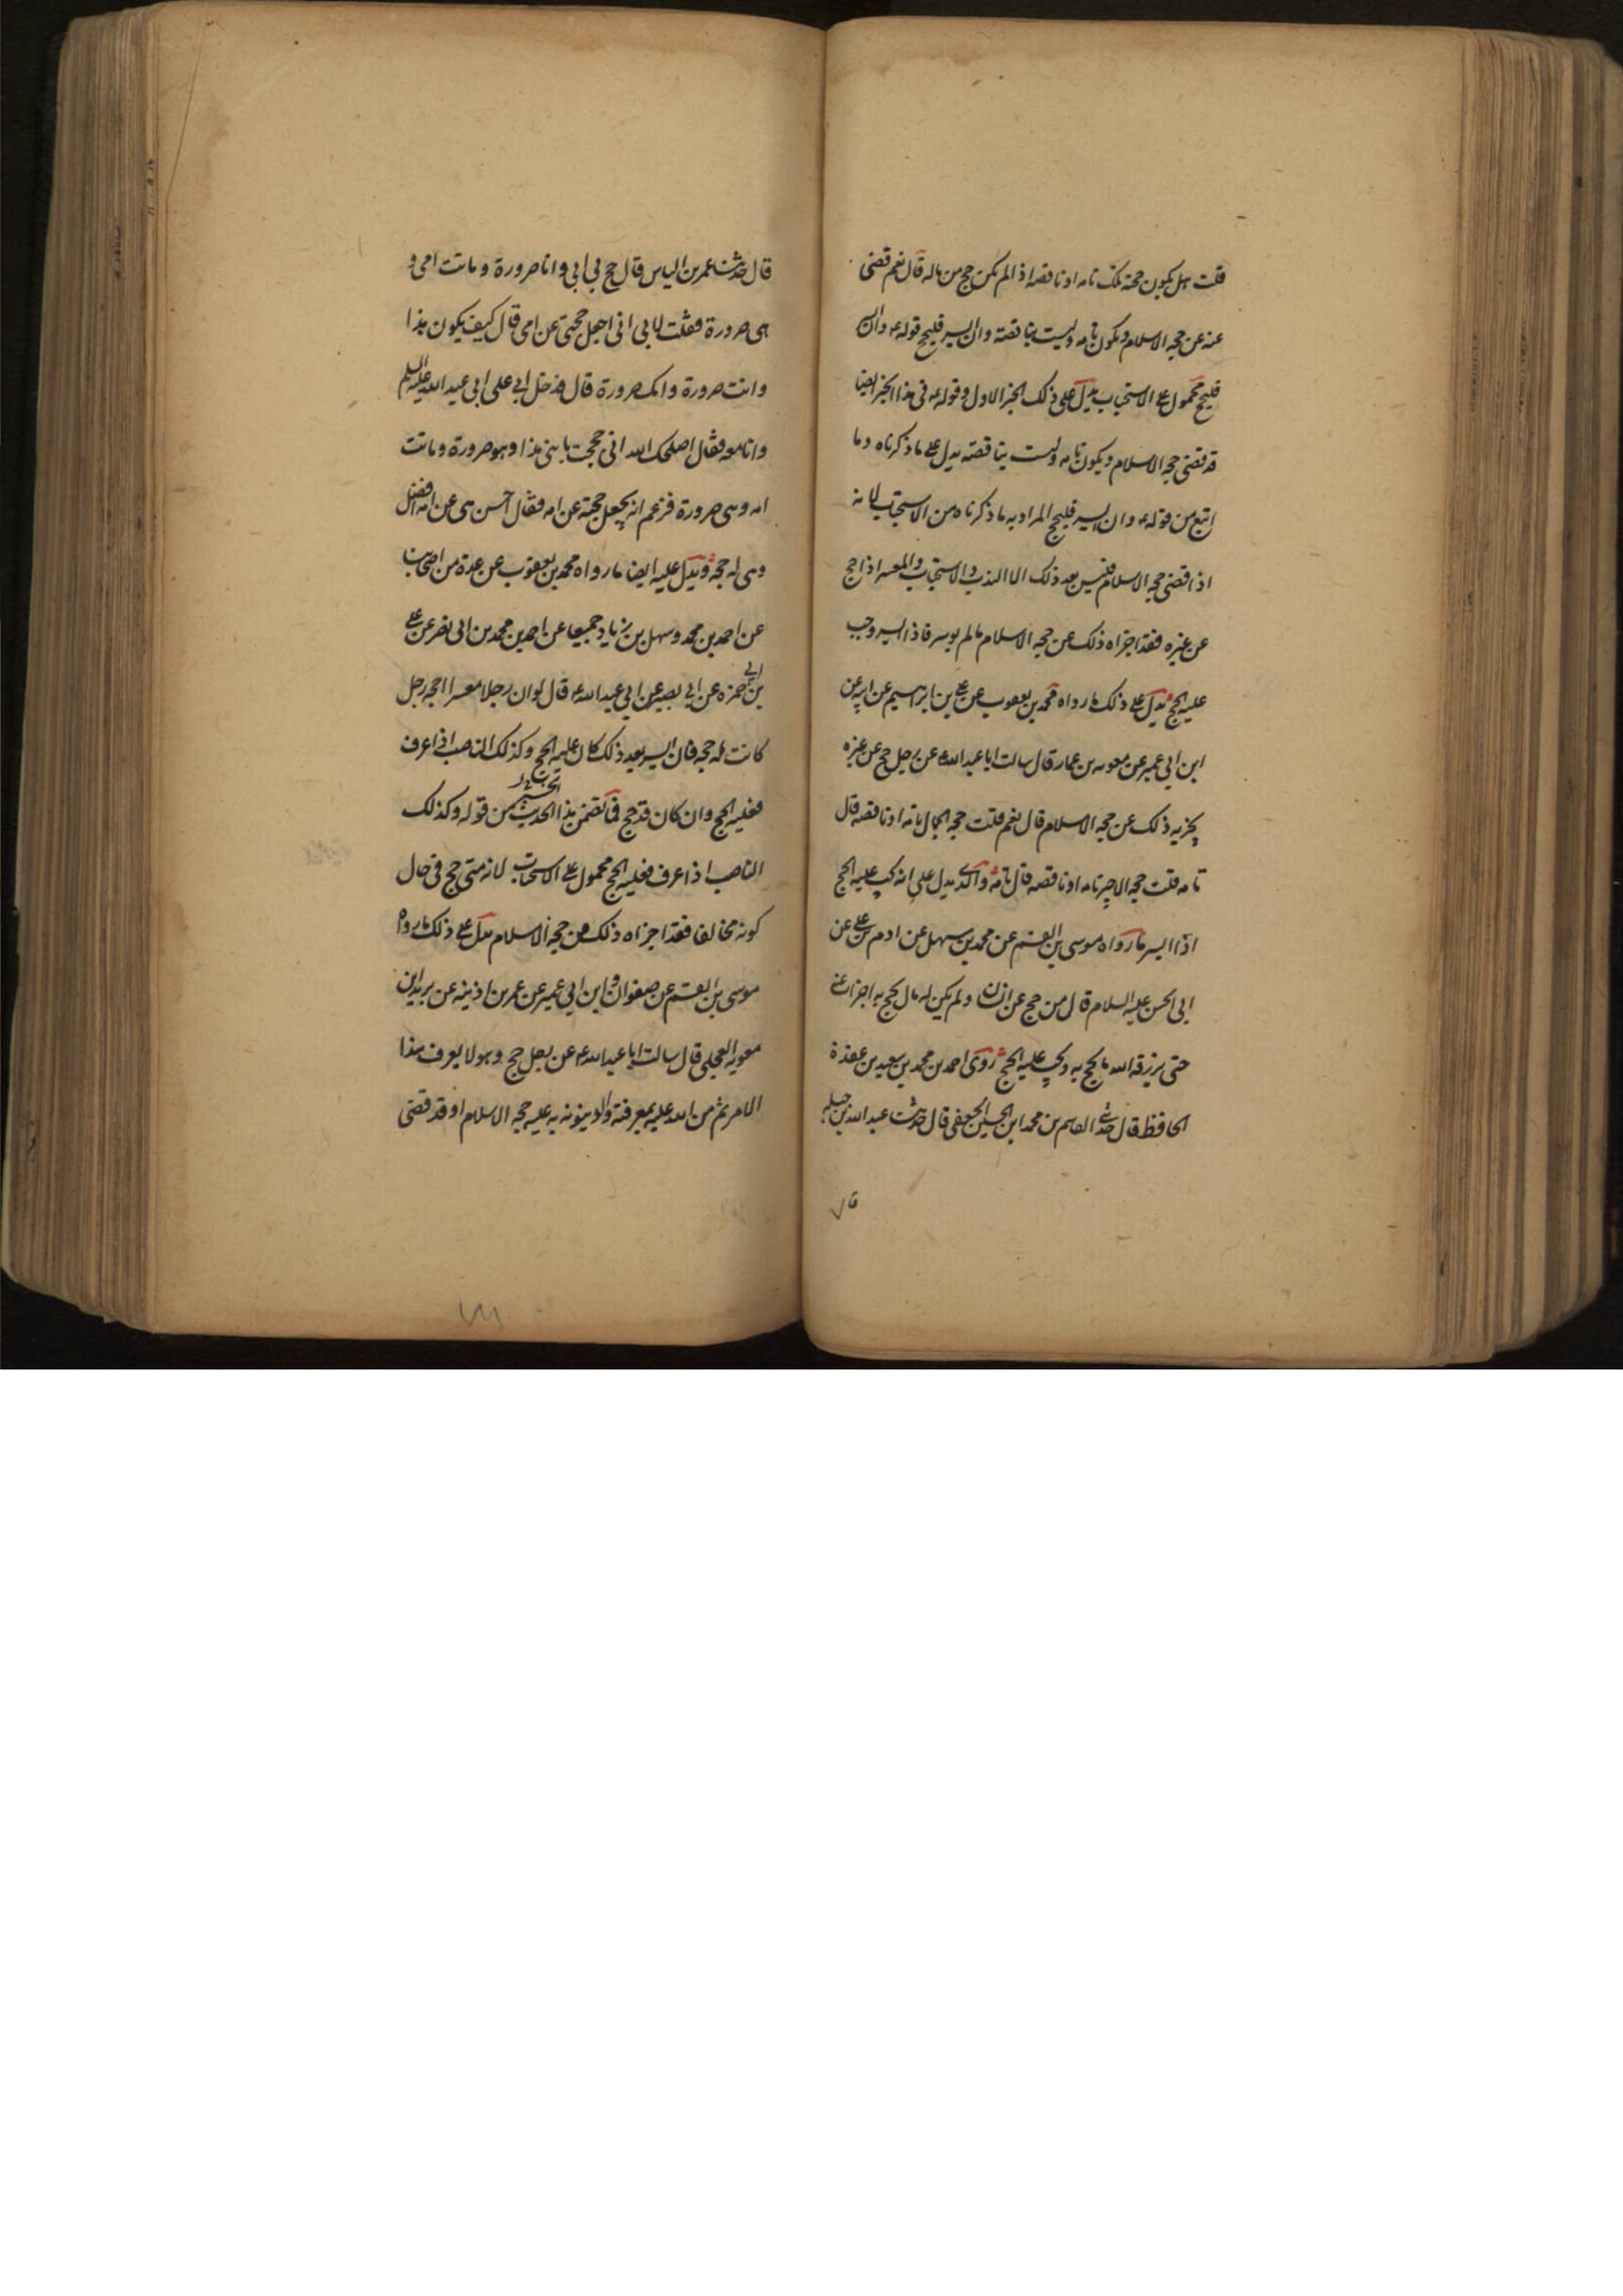 قلت هل يكون حجته تلك تامه او ناقصه اذا لم يكن حج من ماله قال نعم قضى
عنه عن حجه الاسلام ويكون تامه وليست بناقصة وان ايسر فليحج قوله ع وان ايسر
فليحج محمول على الاستحباب يدل على ذلك الخبر الاول وقوله ع فى هذا الخبر ايضا
قد قضى حجه الاسلام ويكون تامه وليست بناقصته يدل على ما ذكرناه وما
اتبع من قوله ع وان ايسر فليحج المراد به ما ذكرناه من الاستحباب لانه
اذا قضى حجه الاسلام فليس بعد ذلك الا الندب والاستحباب والمعسر اذا حج
عن غيره فقد اجزاه ذلك عن حجه الاسلام ما لم يوسر فاذا ايسر وجب
عليه الحج يدل على ذلك ما رواه محمد بن يعقوب عن على بن ابراهيم عن ابيه عن
ابن ابي عمير عن معويه بن عمار قال سالت ابا عبد الله ع عن رجل حج عن غيره
يجزيه ذلك عن حجه الاسلام قال نعم قلت حجه الجمال تامه او ناقصه قال
تامه قلت حجه الاجير تامه او ناقصه قال تامه والذى يدل على انه يجب عليه الحج
اذا ايسر ما رواه موسى بن القسم عن محمد بن سهل عن ادم بن على عن
ابى الحسن عليه السلام قال من حج عن انسان ولم يكن له مال يحج به اجزات عنه
حتى يرزقه الله ما يحج به ويجب عليه الحج روى احمد بن محمد بن سعيد بن عقدة
الحافظ قال حدثنى القاسم بن محمد ابن الحسين الجعفى قال حدثنا عبد الله بن جبله
قال
قال حدثنا عمر بن الياس قال حج بى ابى وانا صرورة وماتت امى و
هى صرورة فقلت لابى انى اجعل حجتى عن امى قال كيف يكون هذا
وانت صرورة وامك صرورة قال فدخل ابى على ابى عبد الله عليه السلم
وانا معه فقال اصلحك الله انى حججت بابنى هذا وهو صرورة وماتت
امه وهى صرورة فزعم انه يجعل حجته عن امه فقال احسن هى عن امه افضل
وهى له حجه ويدل عليه ايضا ما رواه محمد بن يعقوب عن عدة من اصحابنا
عن احمد بن محمد وسهل بن زياد جميعا عن احمد بن محمد بن ابى نصر عن على
بن ابى حمزه عن ابى بصير عن ابى عبد الله ع قال لو ان رجلا معسرا احجه رجل
كانت له حجه فان ايسر بعد ذلك كان عليه الحج وكذلك الناصب اذا عرف
فعليه الحج وان كان قد حج فما تضمن هذا الحديث من قوله وكذلك
الناصب اذا عرف فعليه الحج محمول على الاستحباب لانه متى حج فى حال
كونه مخالفا فقد اجزاه ذلك من حجه الاسلام يدل على ذلك ما رواه
موسى بن القسم عن صفوان وابن ابى عمير عن عمر بن اذينه عن بريد ابن
معويه العجلى قال سالت ابا عبد الله ع عن رجل حج وهو لا يعرف هذا
الامر ثم من الله عليه بمعرفته والدينونه به عليه حجه الاسلام او قد قضى